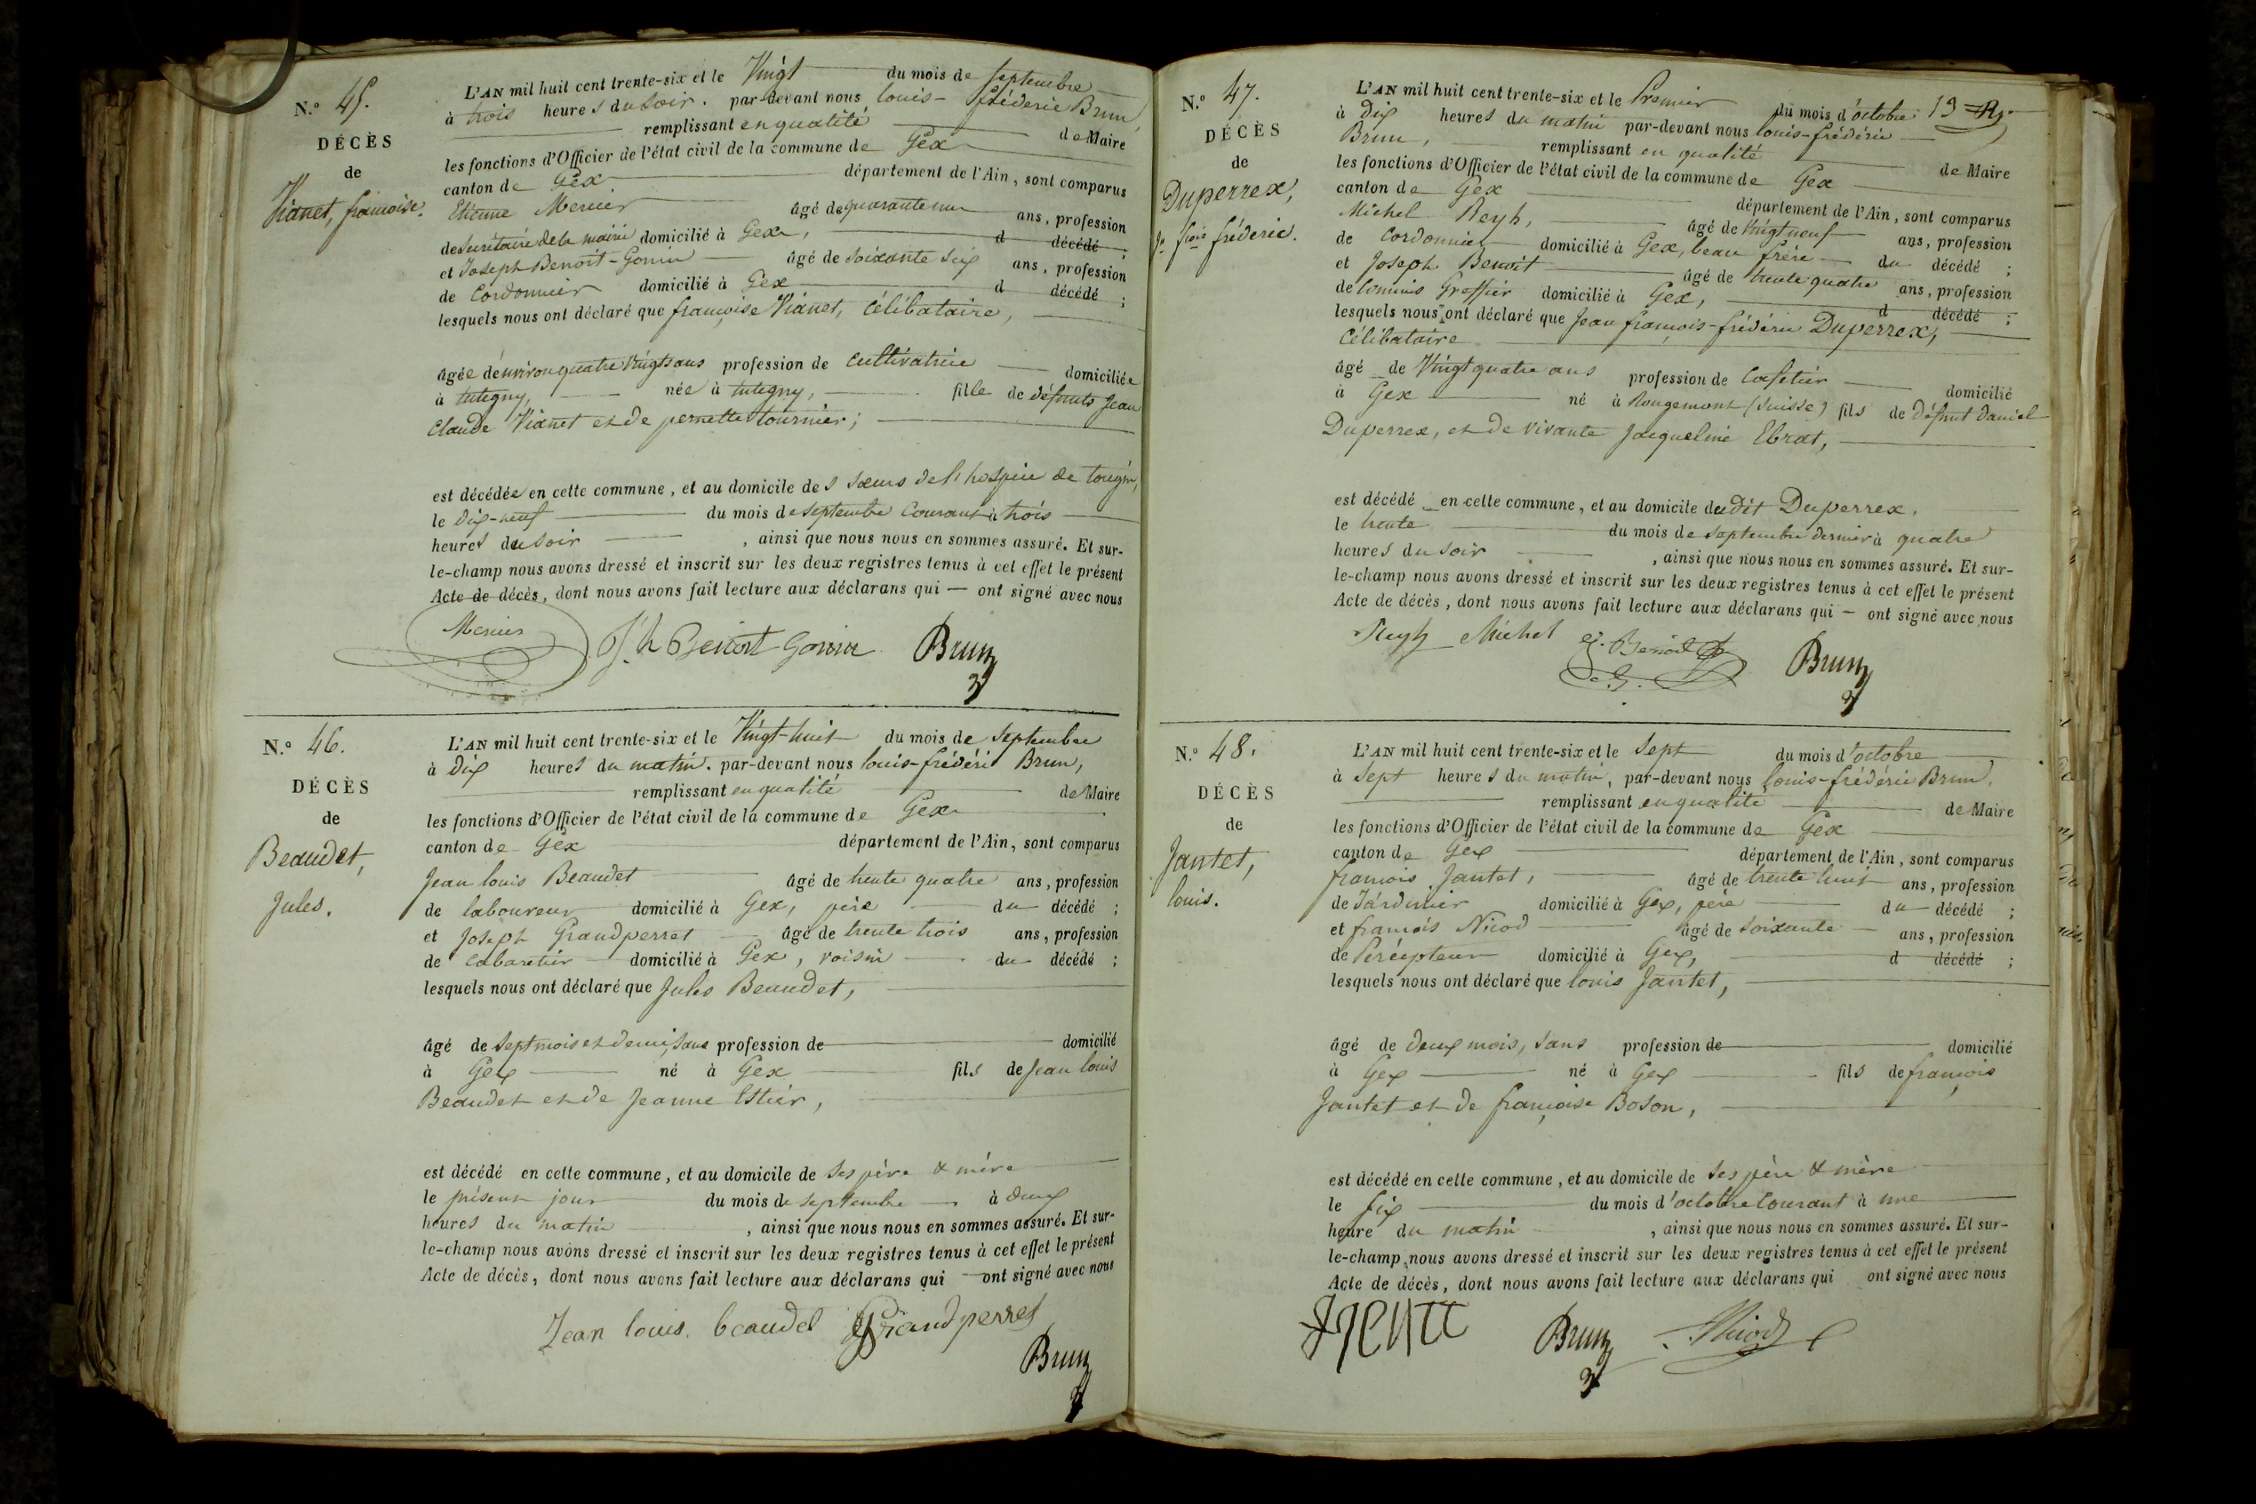 N.º 45.
DÉCÈS
de
Vianet, françoise.
L'AN mil huit cent trente-six et le Vingt du mois de septembre
à trois heures du soir. par-devant nous louis-fréderic Brun,
remplissant en qualité de Maire
les fonctions d'Officier de l'état civil de la commune de Gex
canton de Gex département de l'Ain, sont comparus
Etienne Mercier âgé de quarante un ans, profession
de secrétaire de la mairie domicilié à Gex, d décédé ;
et Joseph Benoit-Gonin âgé de soixante six ans, profession
de Cordonnier domicilié à Gex d décédé ;
lesquels nous ont déclaré que françoise Vianet, Célibataire,
âgée d'environ quatre Vingts ans profession de cultivatrice domiciliée
à tutegny, née à tutegny, fille de défunts Jean
Claude Vianet et de pernette tournier ;
est décédée en cette commune, et au domicile des sœurs de l'hospice de tougin,
le dix-neuf du mois de septembre Courant à trois
heures du soir , ainsi que nous nous en sommes assuré. Et sur-
le-champ nous avons dressé et inscrit sur les deux registres tenus à cet effet le présent
Acte de décès, dont nous avons fait lecture aux déclarans qui — ont signé avec nous
Mercier Jh Benoit Gonin Brun
N.º 46.
DÉCÈS
de
Beaudet,
Jules.
L'AN mil huit cent trente-six et le Vingt-huit du mois de septembre
à dix heures du matin. par-devant nous louis-fréderic Brun,
remplissant en qualité de Maire
les fonctions d'Officier de l'état civil de la commune de Gex
canton de Gex département de l'Ain, sont comparus
Jean louis Beaudet âgé de trente quatre ans, profession
de laboureur domicilié à Gex, père du décédé ;
et Joseph Grandperret âgé de trente trois ans, profession
de cabaretier domicilié à Gex, voisin du décédé ;
lesquels nous ont déclaré que Jules Beaudet,
âgé de sept mois et demi, sans profession de domicilié
à Gex né à Gex fils de Jean louis
Beaudet et de Jeanne Estier,
est décédé en cette commune, et au domicile de ses père & mère
le présent jour du mois de septembre à deux
heures du matin , ainsi que nous nous en sommes assuré. Et sur-
le-champ nous avons dressé et inscrit sur les deux registres tenus à cet effet le présent
Acte de décès, dont nous avons fait lecture aux déclarans qui — ont signé avec nous
Jean louis beaudet Grandperret
Brun
N.º 47.
DÉCÈS
de
Duperrex,
Jn. fçois fréderic.
13
L'AN mil huit cent trente-six et le Premier du mois d'octobre
à dix heures du matin par-devant nous louis-fréderic
Brun, remplissant en qualité de Maire
les fonctions d'Officier de l'état civil de la commune de Gex
canton de Gex département de l'Ain, sont comparus
Michel Reyh, âgé de Vingt neuf ans, profession
de cordonnier domicilié à Gex, beau frère du décédé ;
et Joseph Benoit âgé de trente quatre ans, profession
de Commis Greffier domicilié à Gex, d décédé ;
lesquels nous ont déclaré que Jean françois-fréderic Duperrex,
Célibataire
âgé de Vingt quatre ans profession de Cafetier domicilié
à Gex né à Rougemont (Suisse) fils de défunt Daniel
Duperrex, et de vivante Jacqueline Ebrat,
est décédé en cette commune, et au domicile dudit Duperrex.
le trente du mois de septembre dernier à quatre
heures du soir , ainsi que nous nous en sommes assuré. Et sur-
le-champ nous avons dressé et inscrit sur les deux registres tenus à cet effet le présent
Acte de décès, dont nous avons fait lecture aux déclarans qui — ont signé avec nous
Reyh Michel J. Benoit Brun
N.º 48.
DÉCÈS
de
Jantet,
louis.
L'AN mil huit cent trente-six et le sept du mois d'octobre
à sept heures du matin, par-devant nous louis-fréderic Brun.
remplissant en qualité de Maire
les fonctions d'Officier de l'état civil de la commune de Gex
canton de Gex département de l'Ain, sont comparus
françois Jantet, âgé de trente huit ans, profession
de Jardinier domicilié à Gex, père du décédé ;
et françois Nicod âgé de soixante ans, profession
de Percepteur domicilié à Gex, d décédé ;
lesquels nous ont déclaré que louis Jantet,
âgé de deux mois, sans profession de domicilié
à Gex né à Gex fils de françois
Jantet et de françoise Boson,
est décédé en cette commune, et au domicile de ses père & mère
le six du mois d'octobre Courant à une
heure du matin , ainsi que nous nous en sommes assuré. Et sur-
le-champ nous avons dressé et inscrit sur les deux registres tenus à cet effet le présent
Acte de décès, dont nous avons fait lecture aux déclarans qui ont signé avec nous
Brun Nicod